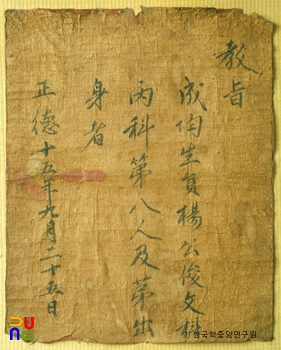 教旨
成均生員楊公俊文科
丙科第八人及第出
身者
正德十五年九月二十五日
한국학중앙연구원